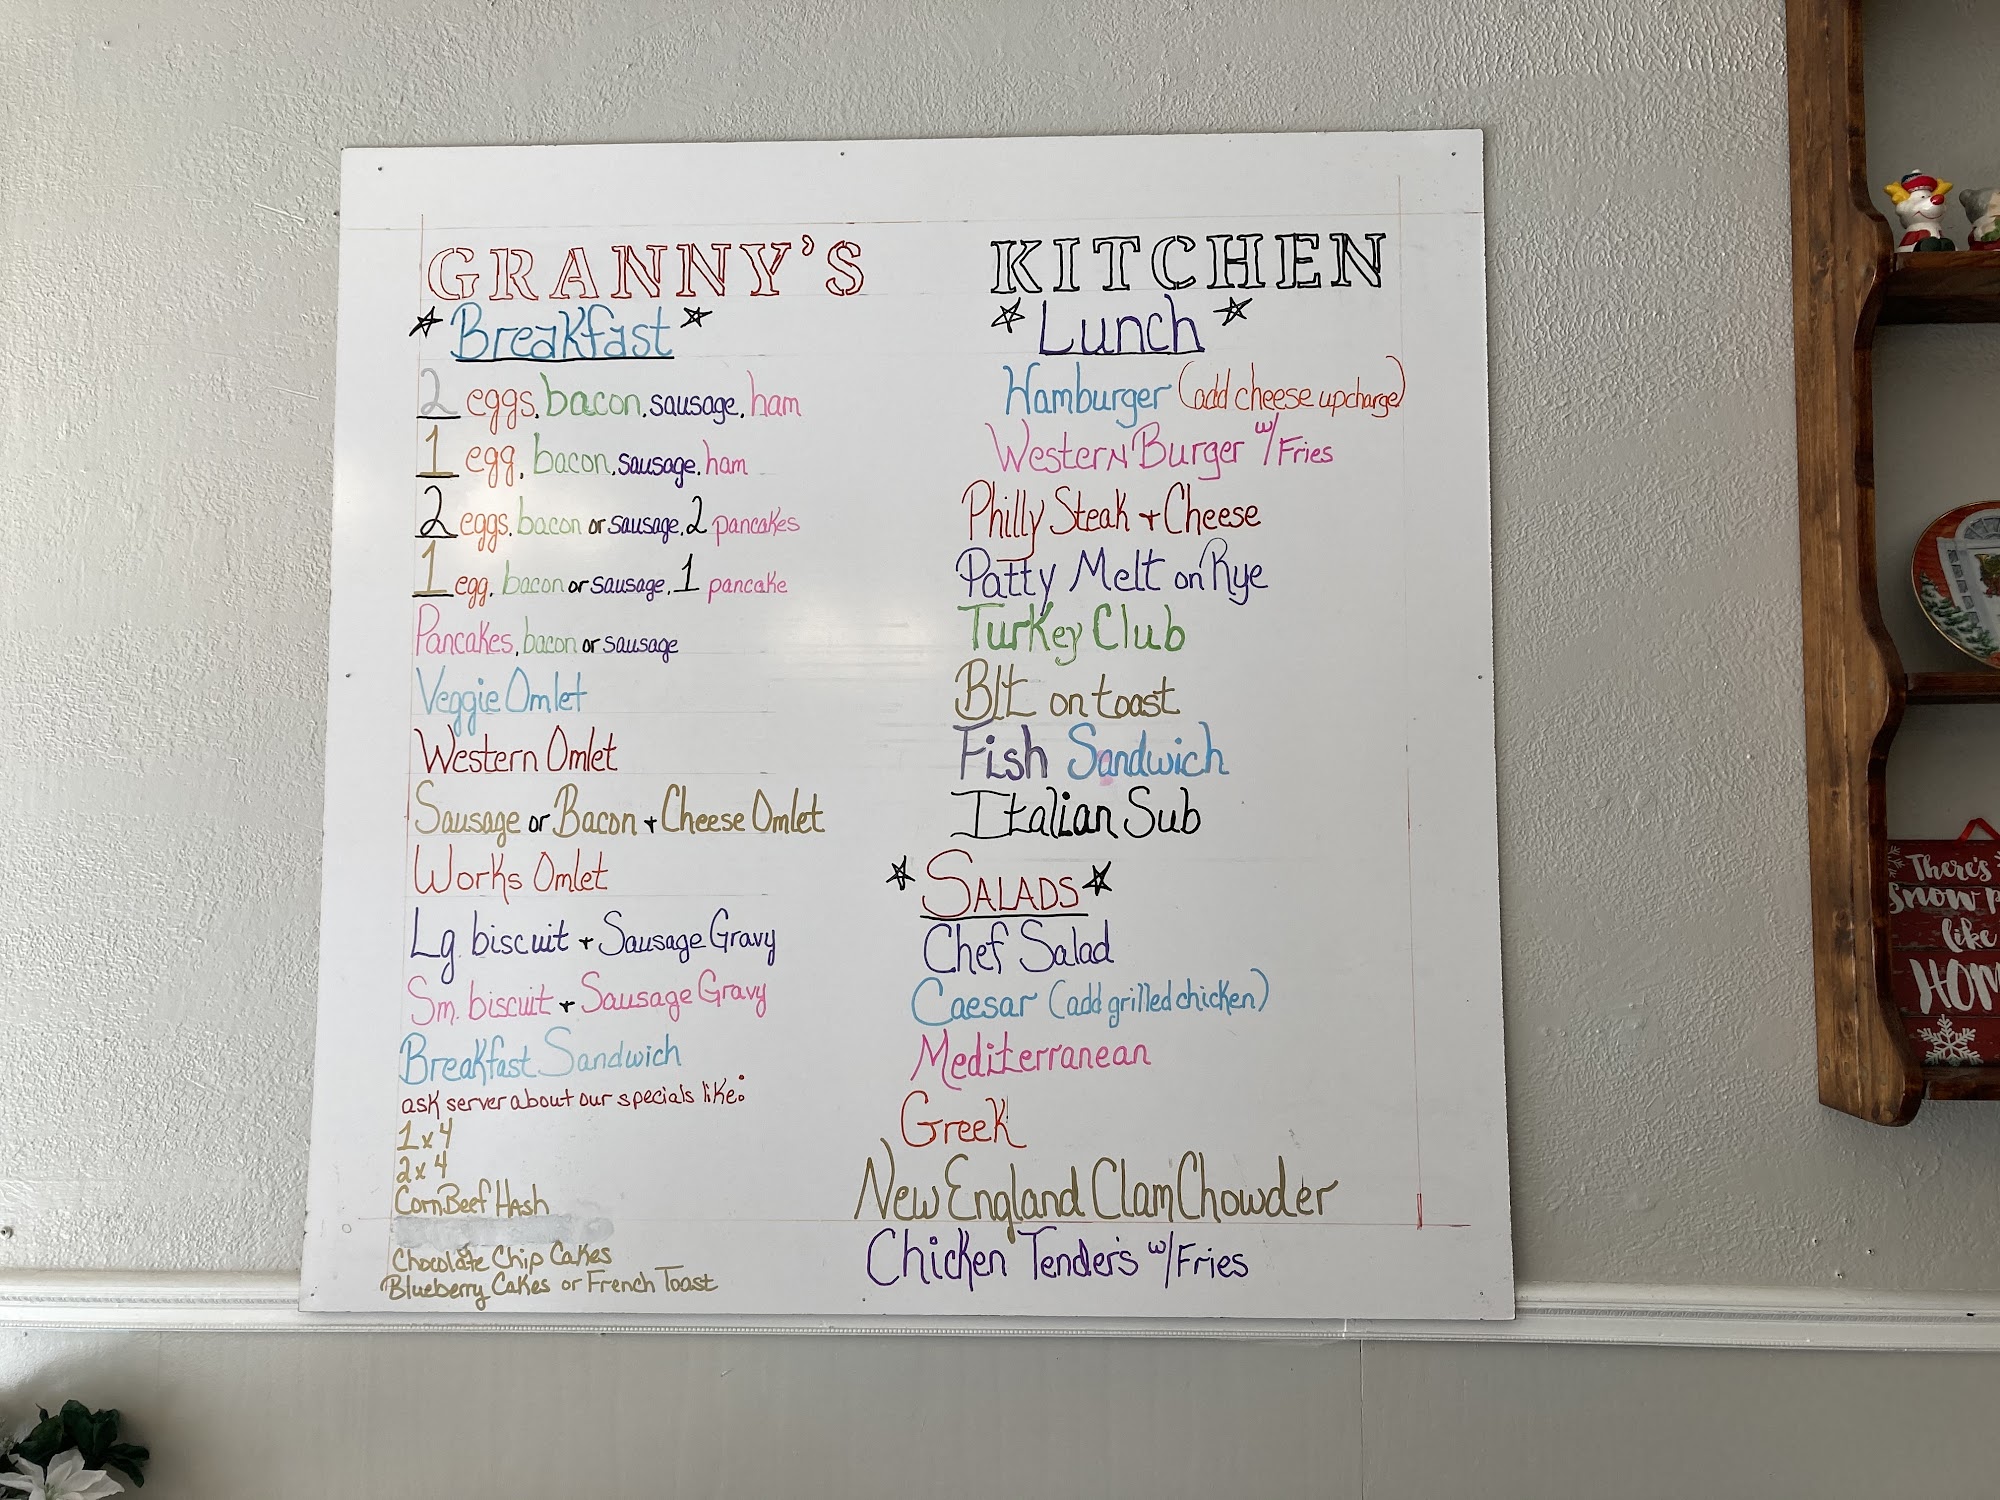 GRANNY'S KITCHEN
*Breakfast*
2 eggs, bacon, sausage, ham
1 egg, bacon, sausage, ham
2 eggs, bacon or sausage, 2 pancakes
1 egg, bacon or sausage, 1 pancake
Pancakes, bacon or sausage
Veggie Omlet
Western Omlet
Sausage or Bacon + Cheese Omlet
Works Omlet
Lg. biscuit + Sausage Gravy
Sm. biscuit + Sausage Gravy
Breakfast Sandwich
ask server about our specials like:
1x4
2x4
Corn Beef Hash
Chocolate Chip Cakes
Blueberry Cakes or French Toast
*Lunch*
Hamburger (add cheese upcharge)
Western Burger w/Fries
Philly Steak + Cheese
Patty Melt on Rye
Turkey Club
Blt on toast
Fish Sandwich
Italian Sub
*SALADS*
Chef Salad
Caesar (add grilled chicken)
Mediterranean
Greek
New England Clam Chowder
Chicken Tenders w/Fries
There's
snow
like